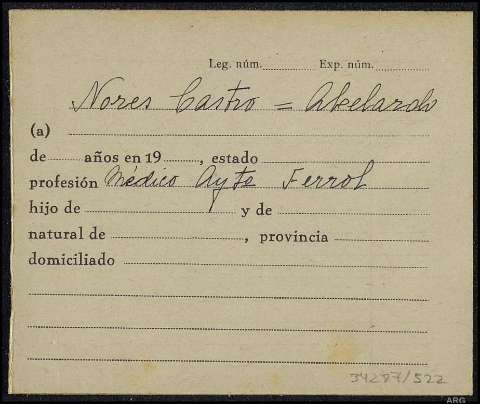 Leg. núm. Exp. núm.
Nores Castro = Abelardo
(a)
de años en 19 , estado
profesión Médico Ayte Ferrol
hijo de y de
natural de , provincia
domiciliado
34287/522
ARG